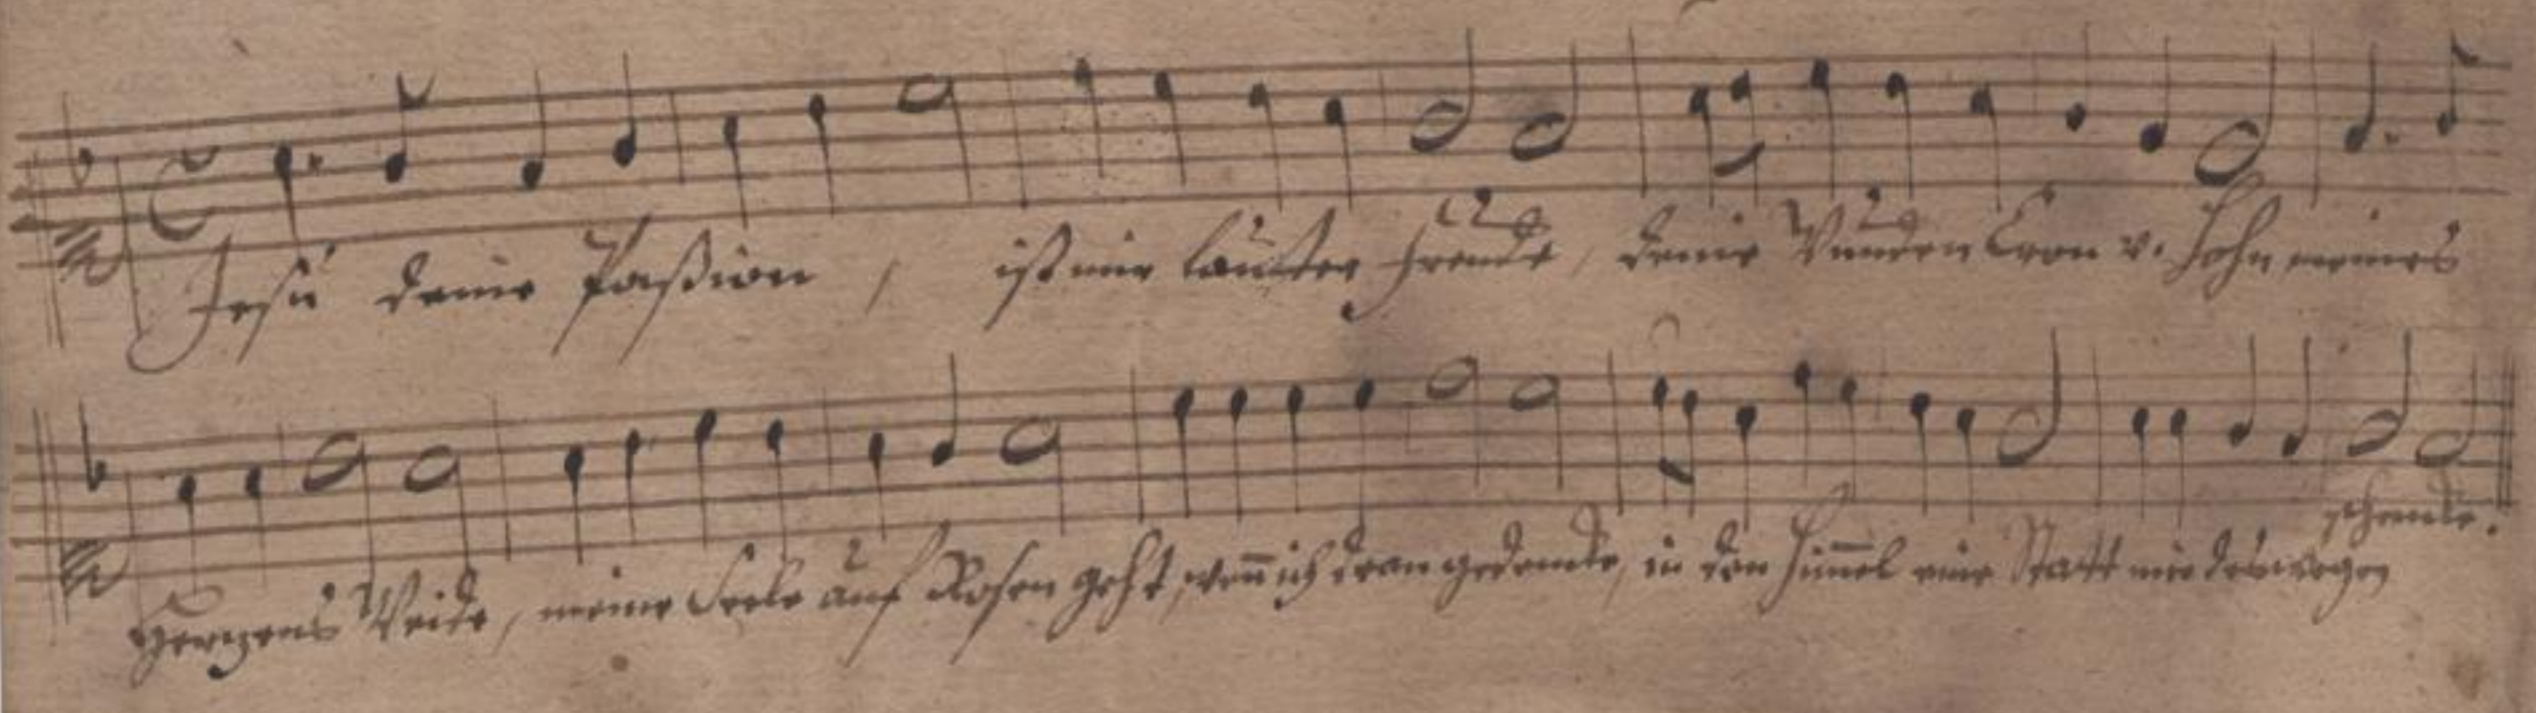 Jesu deine Paßion, ist mir lauter Freude, deine Wunden Cron v. Hohn meines
Hertzens Weide, meine Seele auf Rosen geht, wen̄ ich dran gedencke, in dem Him̄el eine Statt mir deswegen
schencke.